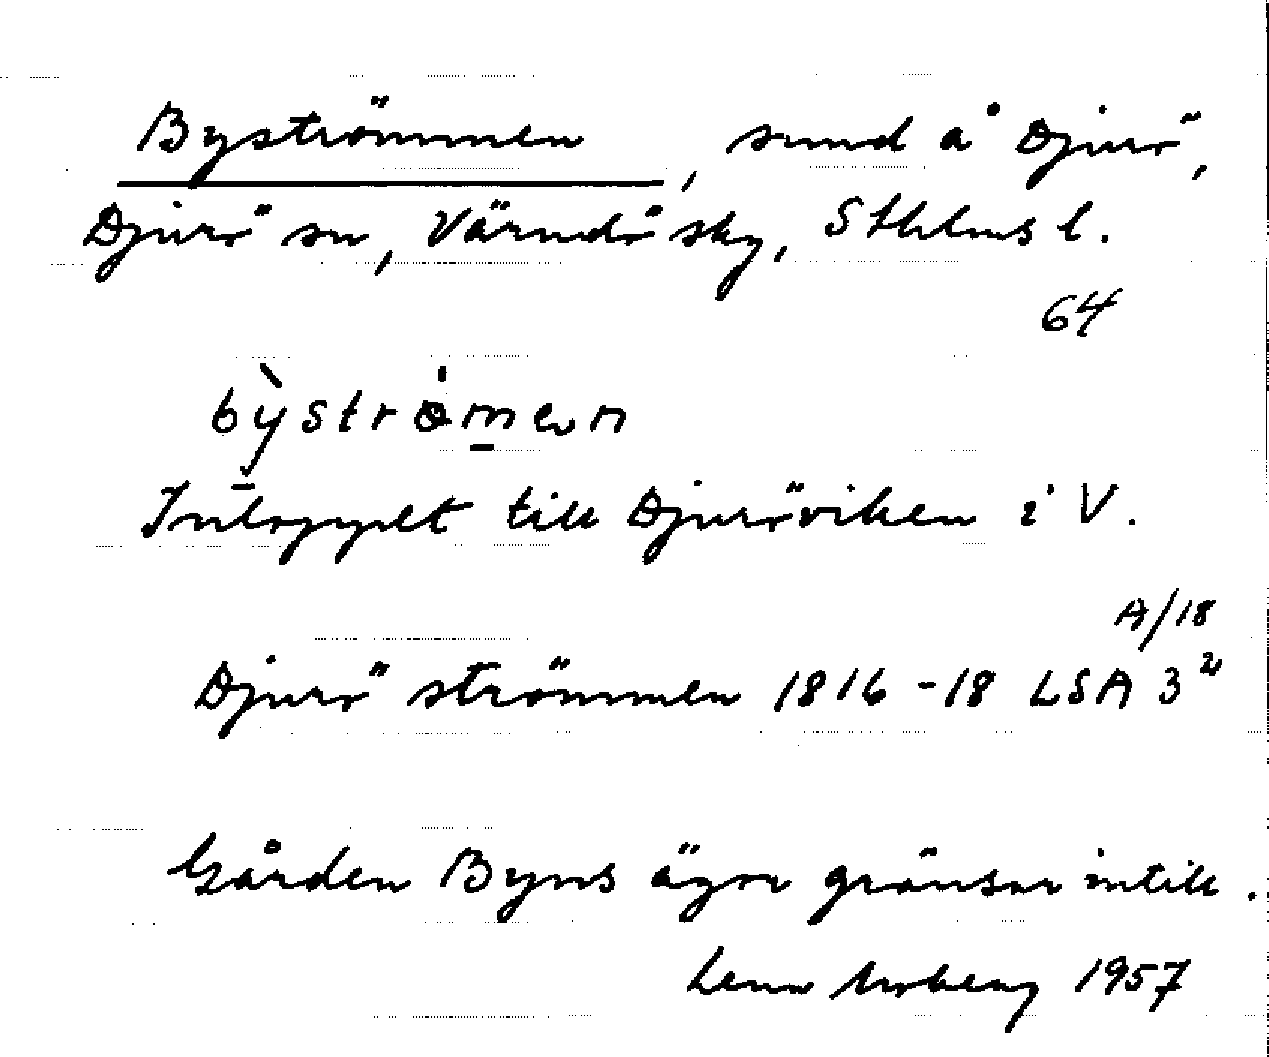 Byströmmen, sund å Djurö,
Djurö sn, Värmdö sky, Sthlms l.
64
bỳströ́men
Inloppet till Djuröviken i V.
A/18
Djurö strömmen 1816-18 LSA 3²
Gården Byns ägor gränsar intill.
Lena Moberg 1957